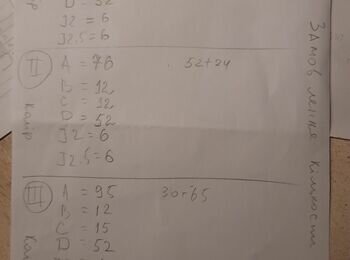 D = 52
J2 = 6
J2.5 = 6
ЗАМОВЛЕННЯ КІЛЬКОСТІ
II
A = 76
52+24
B = 12
C = 12
D = 52
J2 = 6
J2.5 = 6
колір
III
A = 95
30+65
B = 12
C = 15
D = 52